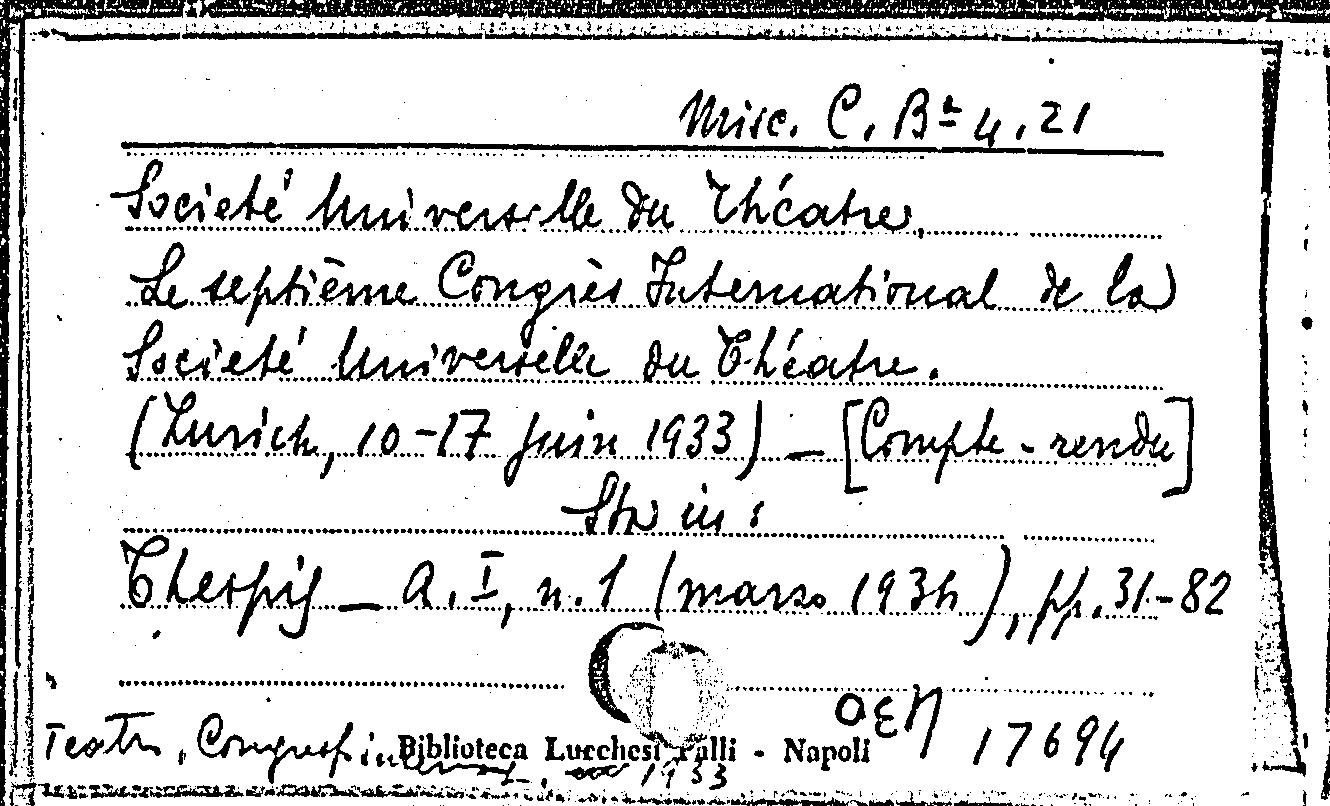 Misc. C. Bª 4. 21
Societé Universelle du Théatre.
Le septième Congrès International de la
Societé Universelle du Théatre.
(Zurich, 10-17 Juin 1933) — [Compte-rendu]
Sta in:
Thespis — A. I, n. 1 (marzo 1934), pp. 31-82
17694
Biblioteca Lucchesi Palli - Napoli
Teatro, Congressi 1933